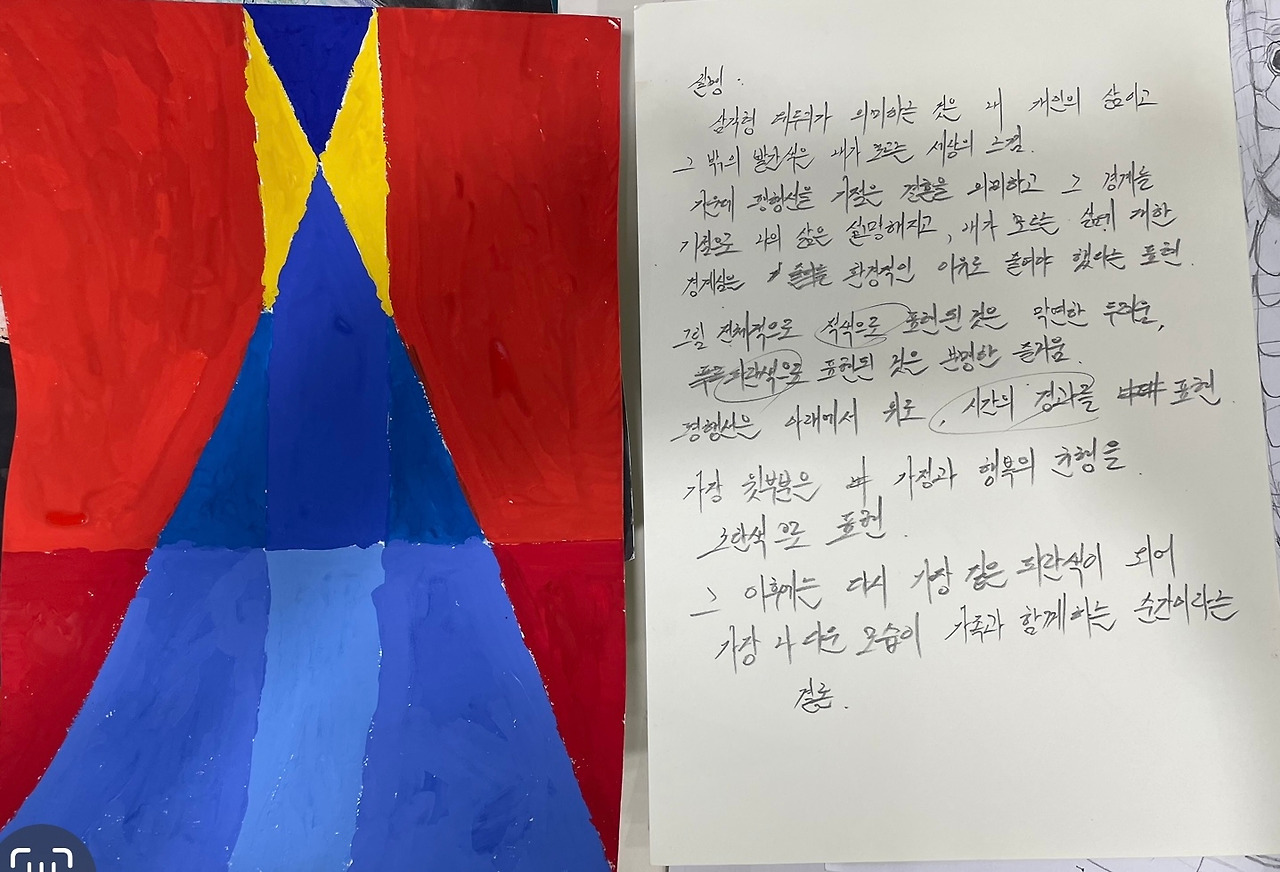 설명.
삼각형 테두리가 의미하는 것은 내 개인의 삶이고
그 밖의 빨간색은 내가 모르는 세상의 느낌.
가운데 평행선을 기점은 결혼을 의미하고 그 경계를
기점으로 나의 삶은 설명해지고, 내가 모르는 삶에 대한
경계심은 환경적인 이유로 줄여야 했다는 표현.
그림 전체적으로 적색으로 표현된 것은 막연한 두려움,
파란색으로 표현된 것은 분명한 즐거움.
평행선은 아래에서 위로, 시간의 경과를 표현.
가장 윗부분은 가정과 행복의 균형을
표현.
그 이후에는 다시 가장 짙은 파란색이 되어
가장 나 다운 모습이 가족과 함께하는 순간이라는
결론.